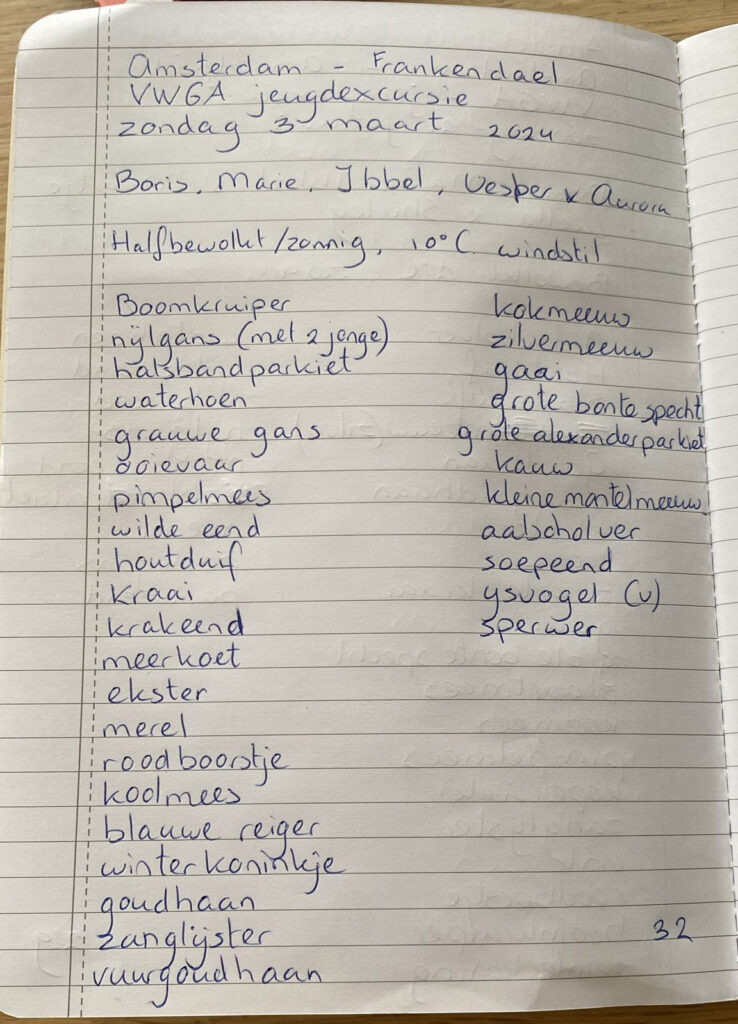 Amsterdam - Frankendael
VWGA jeugdexcursie
zondag 3 maart 2024
Boris, Marie, Ibbel, Vesper & Aurora
Halfbewolkt/zonnig, 10°C windstil
Boomkruiper
nijlgans (met 2 jonge)
halsbandparkiet
waterhoen
grauwe gans
ooievaar
pimpelmees
wilde eend
houtduif
kraai
krakeend
meerkoet
ekster
merel
roodborstje
koolmees
blauwe reiger
winterkoninkje
goudhaan
zanglijster
vuurgoudhaan
kokmeeuw
zilvermeeuw
gaai
grote bonte specht
grote alexanderparkiet
kauw
kleine mantelmeeuw
aalscholver
soepeend
ysvogel (v)
sperwer
32